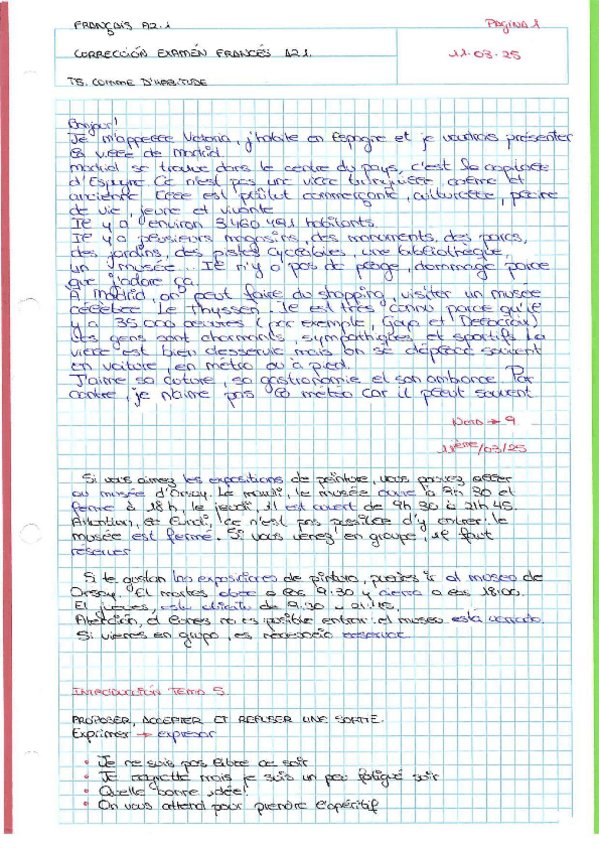 FRANÇAIS A2.1
PÁGINA 1
CORRECCIÓN EXAMEN FRANCÉS A2.1.
11-03-25
T5. COMME D'HABITUDE
Bonjour!
Je m'appelle Victoria, j'habite en Espagne et je voudrais présenter
la ville de Madrid.
Madrid se trouve dans le centre du pays, c'est la capitale
d'Espagne. Ce n'est pas une ville tranquille, calme et
ancienne. Elle est plûtot commerçante, culturelle, pleine
de vie, jeune et vivante.
Il y a environ 3.460.491 habitants.
Il y a plusieurs magasins, des monuments, des parcs,
des jardins, des pistes cyclables, une bibliothèque,
un musée... Il n'y a pas de plage, dommage parce
que j'adore ça.
A Madrid, on peut faire du shopping, visiter un musée
célèbre Le Thyssen. Il est très connu parce qu'il
y a 35.000 œuvres (par exemple, Goya et Delacroix)
Les gens sont charmants, sympathiques et sportifs. La
ville est bien desservie mais on se déplace souvent
en voiture, en métro ou à pied.
J'aime sa culture, sa gastronomie et son ambiance. Par
contre, je n'aime pas la météo car il pleut souvent
Nota → 9
11ème/03/25
Si vous aimez les expositions de peinture, vous pouvez aller
au musée d'Orsay. Le mardi, le musée ouvre à 9h 30 et
ferme à 18h, le jeudi, il est ouvert de 9h 30 à 21h 45.
Attention, le lundi, ce n'est pas possible d'y entrer: le
musée est fermé. Si vous venez en groupe, il faut
réserver
Si te gustan las exposiciones de pintura, puedes ir al museo de
Orsay. El martes abre a las 9:30 y cierra a las 18:00.
El jueves, está abierto de 9:30 a 21:45.
Atención, el lunes no es posible entrar: el museo está cerrado.
Si vienes en grupo, es necesario reservar
INTRODUCCIÓN TEMA 5.
PROPOSER, ACCEPTER ET REFUSER UNE SORTIE.
Exprimer → expresar
• Je ne suis pas libre ce soir
• Je regrette mais je suis un peu fatigué soir
• Quelle bonne idée!
• On vous attend pour prendre l'apéritif